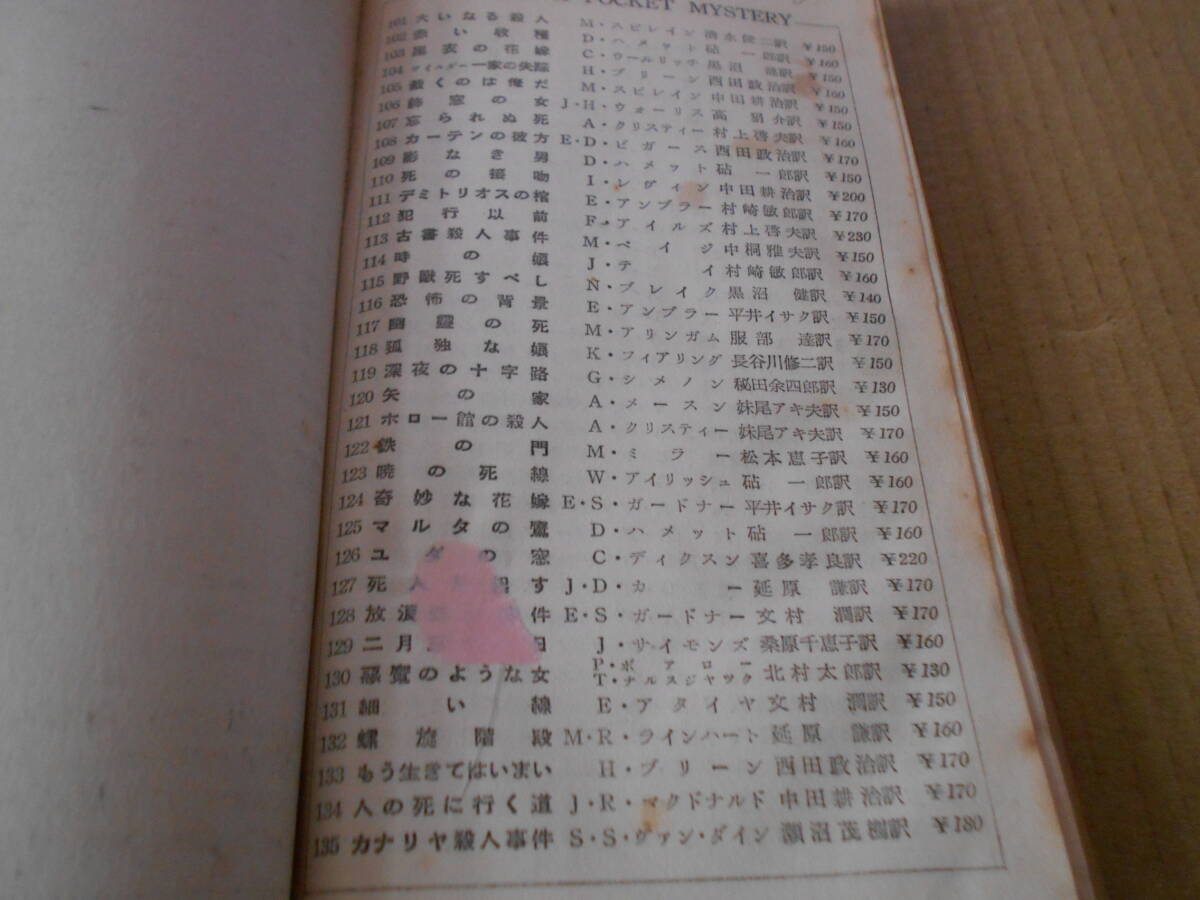 POCKET MYSTERY
101 大いなる殺人 M・スピレイン 清水俊二訳 ¥150
102 赤い収穫 D・ハメット 砧一郎訳 ¥160
103 黒衣の花嫁 C・ウールリッチ 黒沼健訳 ¥150
104 ワイルダー一家の失踪 H・ブリーン 西田政治訳 ¥160
105 裁くのは俺だ M・スピレイン 中田耕治訳 ¥150
106 飾窓の女 J・H・ウォーリス 高別介訳 ¥150
107 忘られぬ死 A・クリスティー 村上啓夫訳 ¥160
108 カーテンの彼方 E・D・ビガース 西田政治訳 ¥170
109 影なき男 D・ハメット 砧一郎訳 ¥150
110 死の接吻 I・レヴィン 中田耕治訳 ¥200
111 デミトリオスの棺 E・アンブラー 村崎敏郎訳 ¥170
112 犯行以前 F・アイルズ 村上啓夫訳 ¥230
113 古書殺人事件 M・ペイジ 中桐雅夫訳 ¥150
114 時の娘 J・テイ 村崎敏郎訳 ¥160
115 野獣死すべし N・ブレイク 黒沼健訳 ¥140
116 恐怖の背景 E・アンブラー 平井イサク訳 ¥150
117 幽霊の死 M・アリンガム 服部達訳 ¥170
118 孤独な娘 K・フィアリング 長谷川修二訳 ¥150
119 深夜の十字路 G・シメノン 秘田余四郎訳 ¥130
120 矢の家 A・メースン 妹尾アキ夫訳 ¥150
121 ホロー館の殺人 A・クリスティー 妹尾アキ夫訳 ¥170
122 鉄の門 M・ミラー 松本恵子訳 ¥160
123 暁の死線 W・アイリッシュ 砧一郎訳 ¥160
124 奇妙な花嫁 E・S・ガードナー 平井イサク訳 ¥170
125 マルタの鷹 D・ハメット 砧一郎訳 ¥160
126 ユダの窓 C・ディクスン 喜多孝良訳 ¥220
127 死人 す J・D・カー 延原謙訳 ¥170
128 放浪 件 E・S・ガードナー 文村潤訳 ¥170
129 二月 日 J・サイモンズ 桑原千恵子訳 ¥160
130 悪魔のような女 P・ボアロー T・ナルスジャック 北村太郎訳 ¥130
131 細い線 E・アタイヤ 文村潤訳 ¥150
132 螺旋階段 M・R・ラインハート 延原謙訳 ¥160
133 もう生きてはいまい H・ブリーン 西田政治訳 ¥170
134 人の死に行く道 J・R・マクドナルド 中田耕治訳 ¥170
135 カナリヤ殺人事件 S・S・ヴァン・ダイン 瀬沼茂樹訳 ¥180